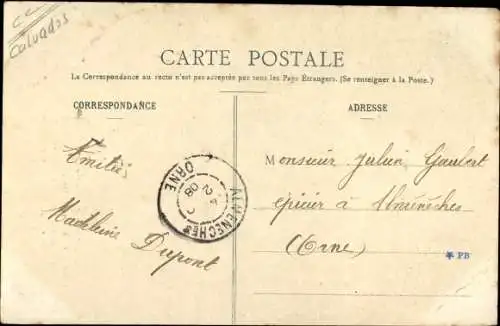 Calvados
CARTE POSTALE
La Correspondance au recto n'est pas acceptée par tous les Pays Étrangers. (Se renseigner à la Poste.)
CORRESPONDANCE
ADRESSE
Amitiés
Madeleine
Dupont
ALMENECHES
ORNE
08
Monsieur Julien Gaubert
épicier à Almenêches
(Orne)
* PB